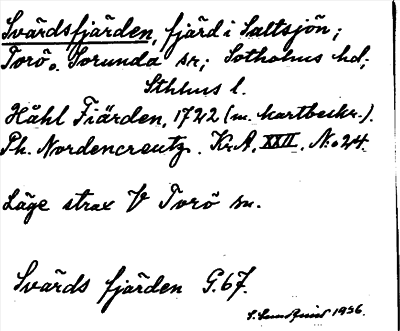 Svärdsfjärden, fjärd i Saltsjön;
Torö o. Sorunda sn; Sotholms hd;
Sthlms l.
Håhl Fiärden, 1722 (m. kartbeskr.).
Ph. Nordencreutz. Kr.A. XXII. N:o 24.
Läge strax V Torö sn.
Svärds fjärden G.67.
S. Lundquist 1936.